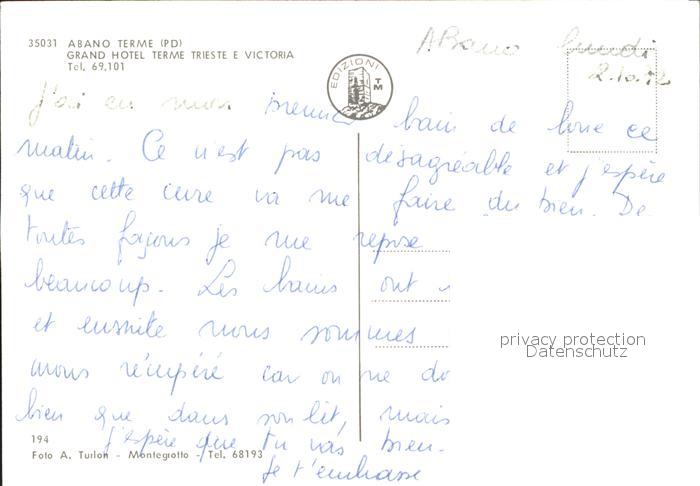 35031 ABANO TERME (PD)
GRAND HOTEL TERME TRIESTE E VICTORIA
Tel. 69,101
EDIZIONI TM
ABano lundi
2.10.72
J'ai eu mon premier bain de boue ce
matin. Ce n'est pas désagréable et j'espère
que cette cure va me faire du bien. De
toutes façons je me repose
beaucoup. Les bains ont
et ensuite nous sommes
avons récupéré car on ne do
bien que dans son lit, mais
j'espère que tu vas bien.
Je t'embrasse
194
Foto A. Turlon - Montegrotto - Tel. 68193
privacy protection
Datenschutz